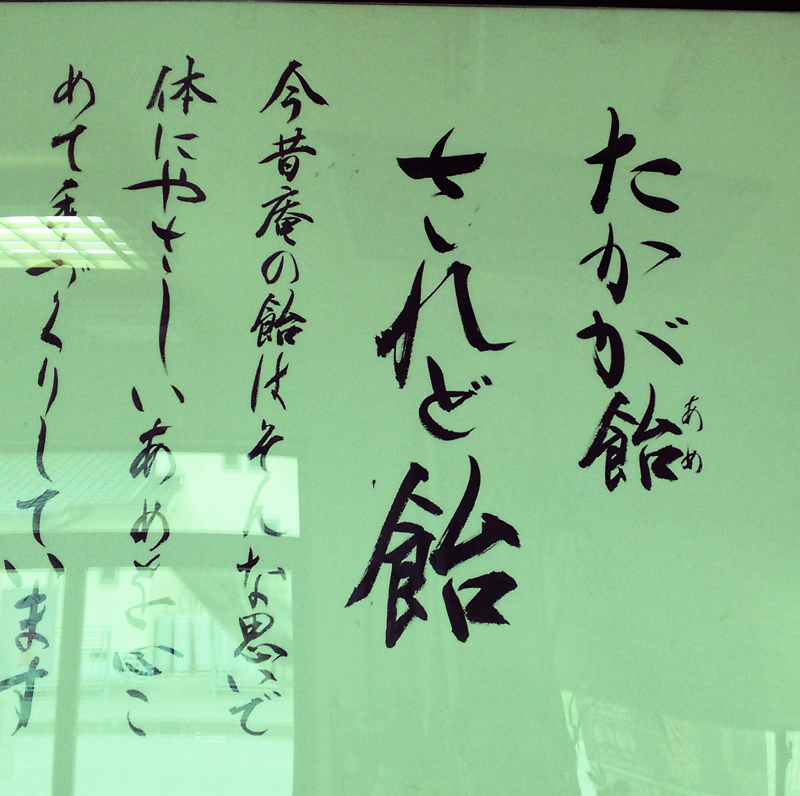 たかが飴
あめ
されど飴
今昔庵の飴はそんな思いで
体にやさしいあめを心こ
めて手づくりしています